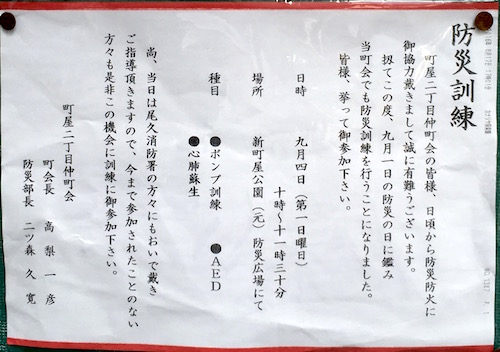 防災訓練
町屋二丁目仲町会の皆様、日頃から防災防火に
御協力戴きまして誠に有難うございます。
扨てこの度、九月一日の防災の日に鑑み
当町会でも防災訓練を行うことになりました。
皆様、挙って御参加下さい。
日時 九月四日(第一日曜日)
十時~十一時三十分
場所 新町屋公園(元)防災広場にて
種目 ●ポンプ訓練 ●AED
●心肺蘇生
尚、当日は尾久消防署の方々にもおいで戴き
ご指導頂きますので、今まで参加されたことのない
方々も是非この機会に訓練に御参加下さい。
町屋二丁目仲町会
町会長 高梨一彦
防災部長 二ツ森久寛